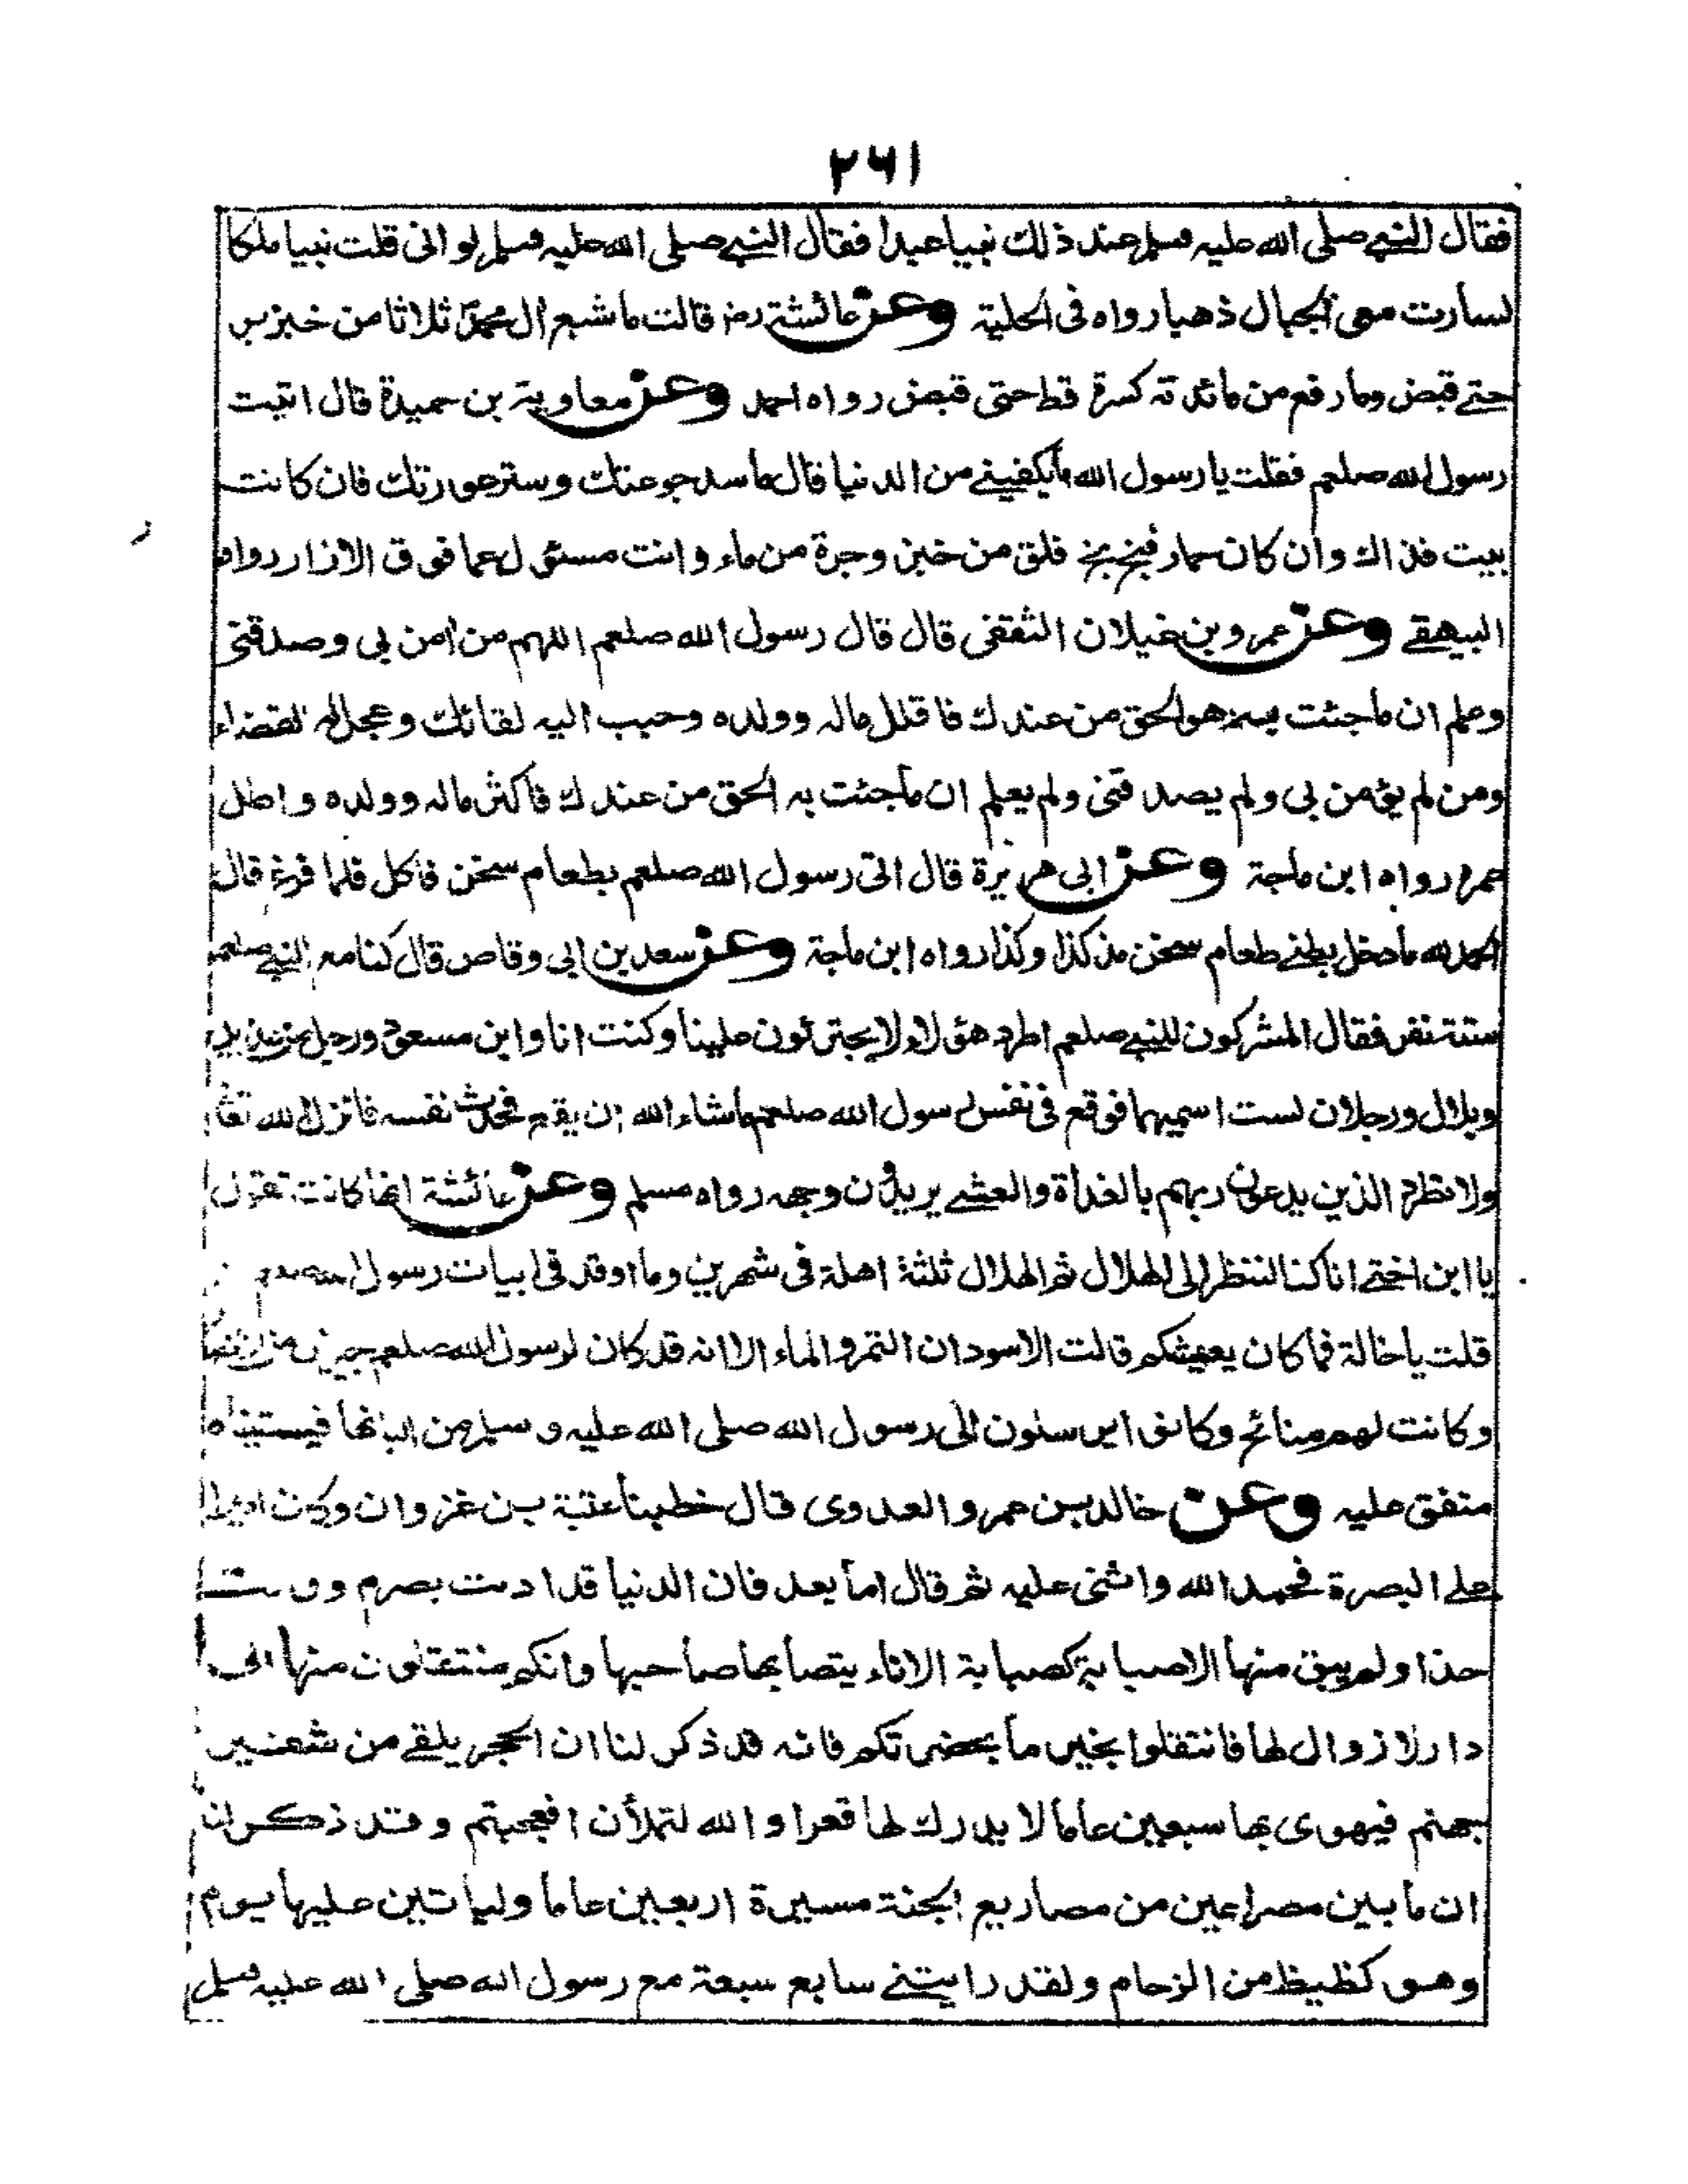 ٢٦١
فقال النبي صلى الله عليه وسلم عند ذلك نبيا عبدا فقال النبي صلى الله عليه وسلم لو اني قلت نبيا ملكا
لسارت معى الجبال ذهبا رواه فى الحلية وعن عائشة رض قالت ما شبع ال محمد ثلاثا من خبز بر
حتے قبض وما رفع من مائدته كسرة قط حتى قبض رواه احمد وعن معاوية بن حميدة قال اتيت
رسول الله صلعم فقلت يا رسول الله ما يكفينے من الدنيا قال ما سد جوعتك وستر عورتك فان كانت
بيت فذاك وان كان حمار فبخ بخ فلق من خبز وجرة من ماء وانت مسئول عما فوق الازار رواه
البيهقے وعن عمرو بن غيلان الثقفى قال قال رسول الله صلعم اللهم من امن بى وصدقنى
وعلم ان ما جئت به هو الحق من عندك فاقلل ماله وولده وحبب اليه لقائك وعجل له القضاء
ومن لم يؤمن بى ولم يصدقنى ولم يعلم ان ما جئت به الحق من عندك فاكثر ماله وولده واطل
عمره رواه ابن ماجة وعن ابى هريرة قال اتى رسول الله صلعم بطعام سخن فاكل فلما فرغ قال
الحمد لله ما دخل بطنے طعام سخن مذ كذا وكذا رواه ابن ماجة وعن سعد بن ابى وقاص قال كنا مع النبے صلعم
ستة نفر فقال المشركون للنبے صلعم اطرد هؤلاء لا يجترئون علينا وكنت انا وابن مسعود ورجل من هذيل
وبلال ورجلان لست اسميهما فوقع فى نفس رسول الله صلعم ما شاء الله ان يقع فحدث نفسه فانزل الله تعا
ولا تطرد الذين يدعون ربهم بالغداة والعشے يريدون وجهه رواه مسلم وعن عائشة انها كانت تقول
يا ابن اختے انا كنا لننظر الى الهلال ثم الهلال ثلثة اهلة فى شهرين وما اوقد فى ابيات رسول الله صلعم
قلت يا خالة فما كان يعيشكم قالت الاسودان التمر والماء الا انه قد كان لرسول الله صلعم جيران من
وكانت لهم منائح وكانوا يرسلون الى رسول الله صلى الله عليه وسلم من البانها فيسقيناه
متفق عليه وعن خالد بن عمرو العدوى قال خطبنا عتبة بن غزوان وكان اميرا
علے البصرة فحمد الله واثنى عليه ثم قال اما بعد فان الدنيا قد اذنت بصرم وولت
حذا ولم يبق منها الا صبابة كصبابة الاناء يتصابها صاحبها وانكم منتقلون منها الى
دار لا زوال لها فانتقلوا بخير ما بحضرتكم فانه قد ذكر لنا ان الحجر يلقے من شفير
جهنم فيهوى بها سبعين عاما لا يدرك لها قعرا والله لتملأن افعجبتم وقد ذكر لنا
ان ما بين مصراعين من مصاريع الجنة مسيرة اربعين عاما ولياتين عليها يوم
وهو كظيظ من الزحام ولقد رايتنے سابع سبعة مع رسول الله صلى الله عليه وسلم